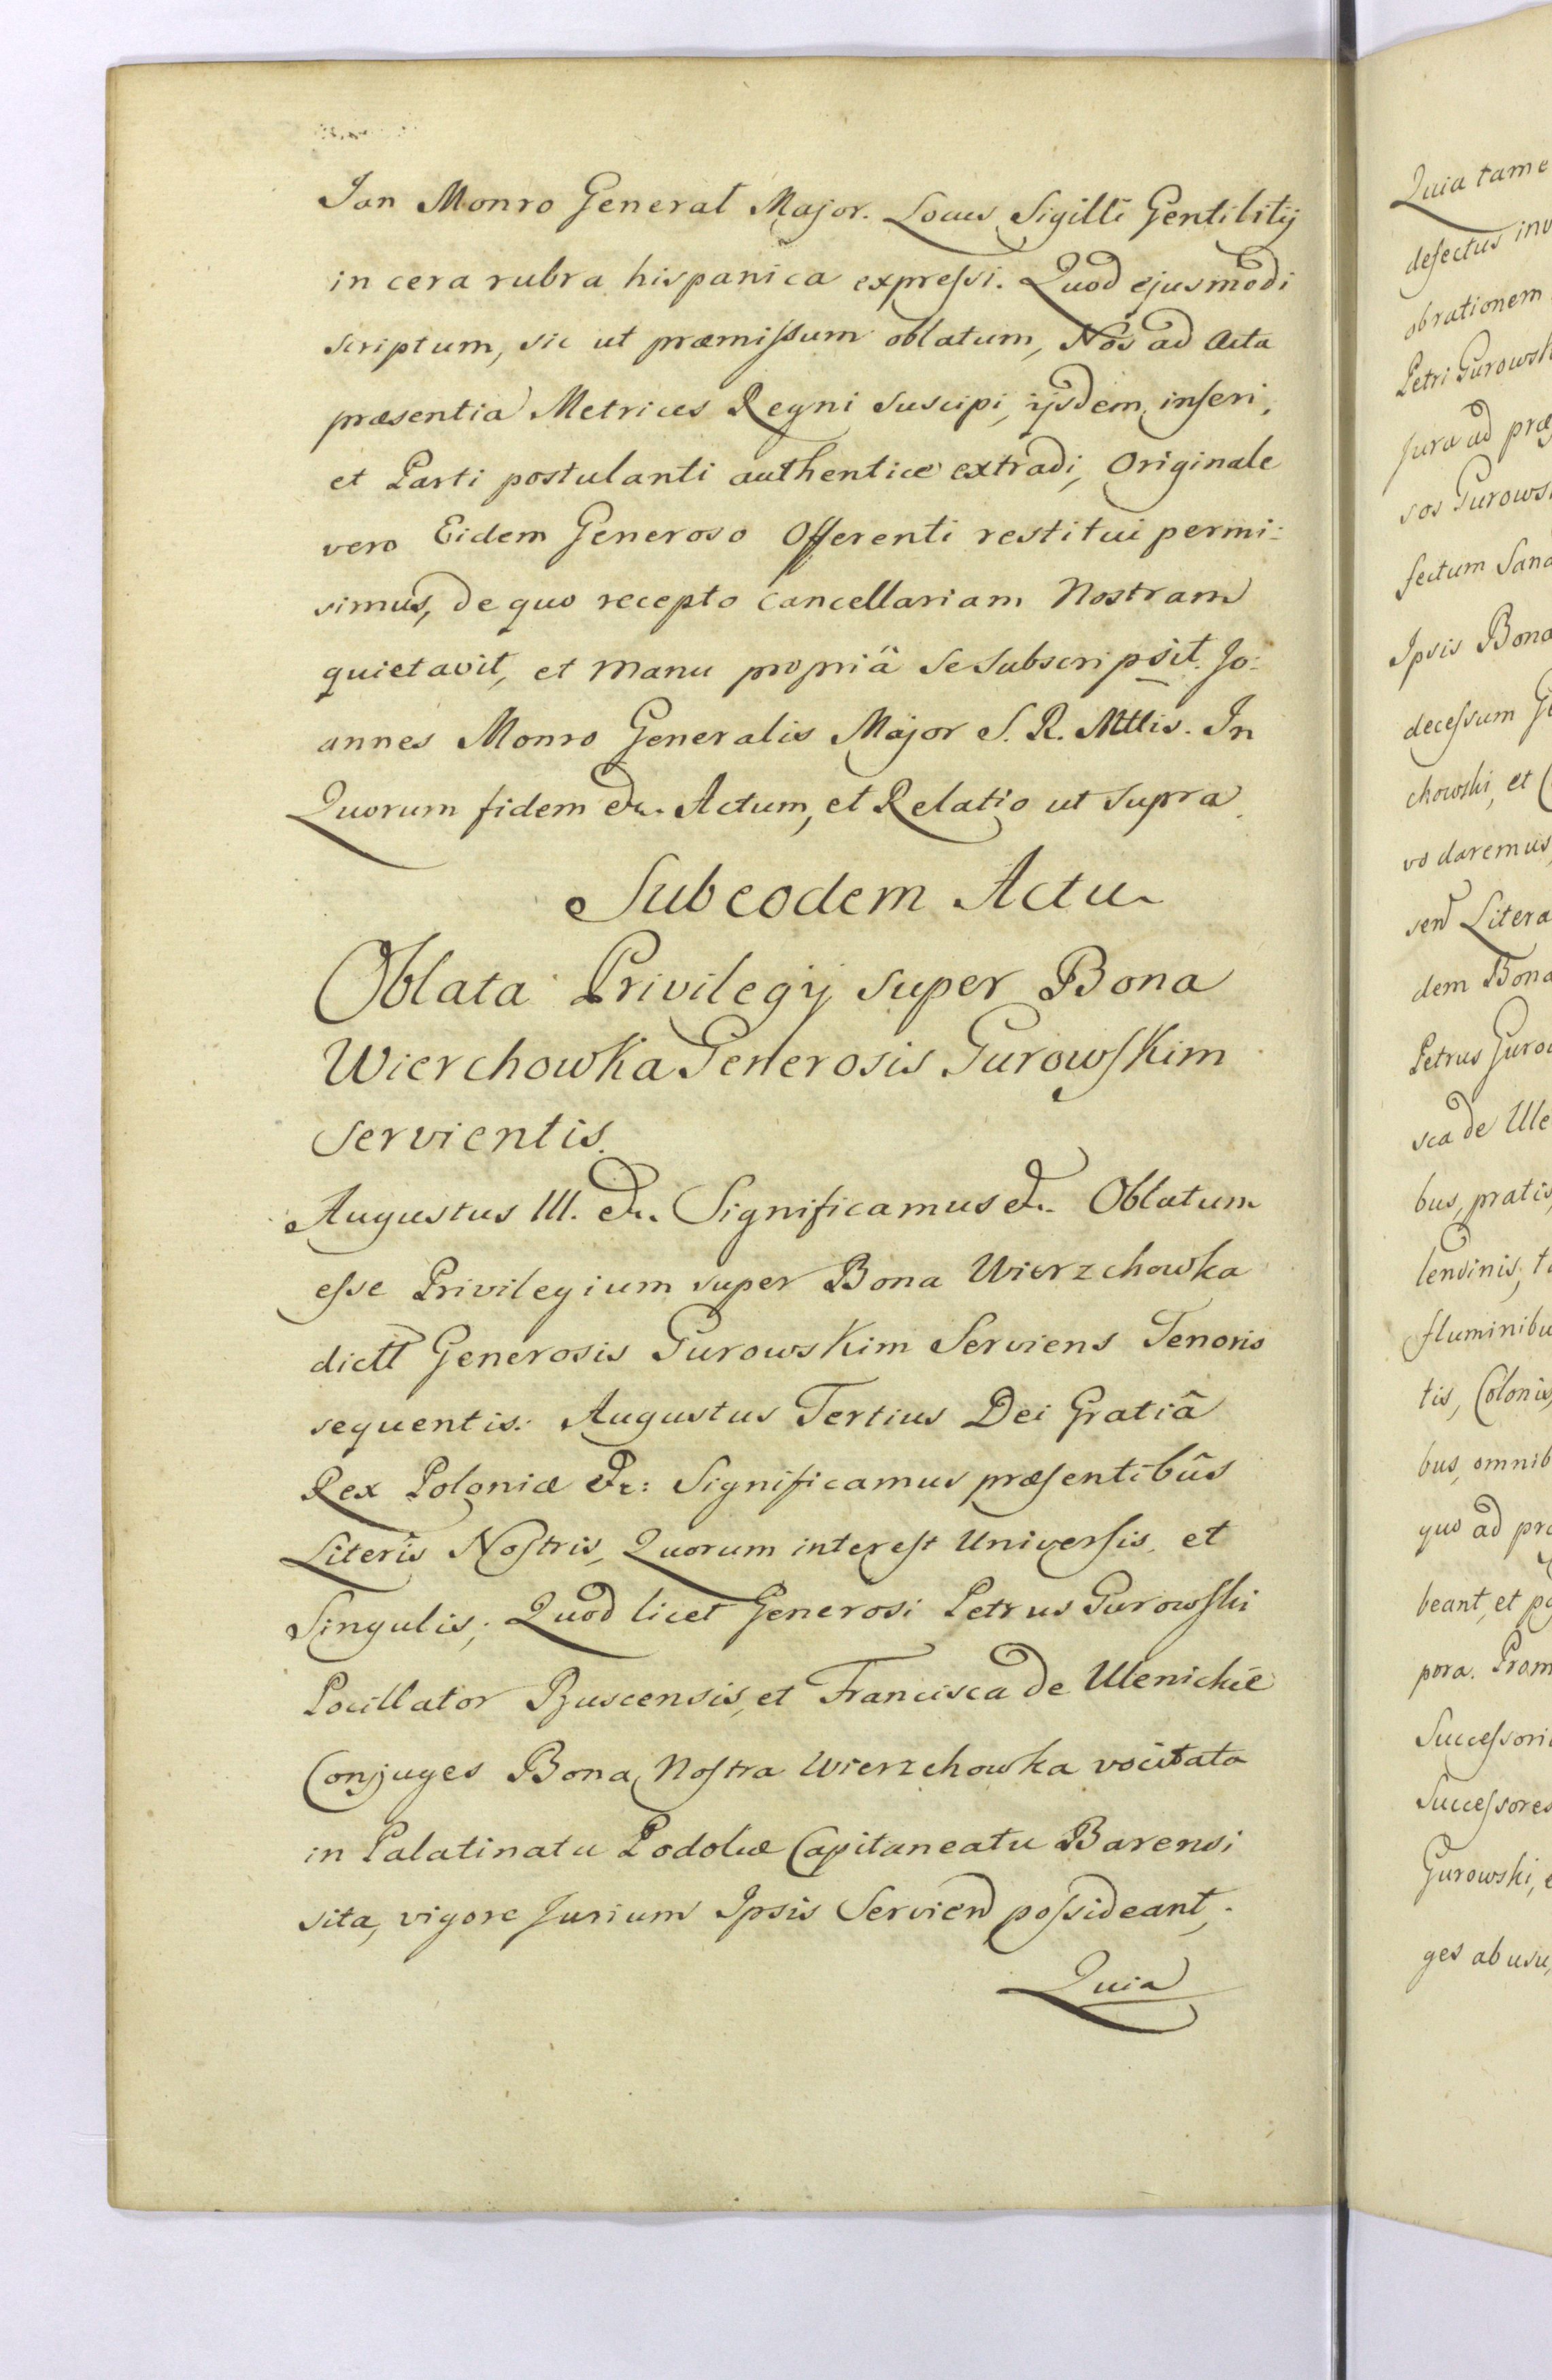 Jan Monro General Major. Locus Sigilli Gentilitij
in cera rubra hispanica expreſsi. Quod ejusmodi
scriptum, sic ut præmiſsum oblatum, Nos ad Acta
præsentia Metrices Regni suscipi, ijsdem inſeri,
et Parti postulanti authentice extradi, Originale
vero Eidem Generoso Offerenti restitui permi:
simus, de quo recepto Cancellariam Nostram
quietavit, et manu propriâ se subscripsit. Jo:
annes Monro Generalis Major S. R. Mttis. In
Quorum fidem &c. Actum, et Relatio ut supra.
Sub eodem Actu
Oblata Privilegij super Bona
Wierchowka Generosis Gurowſkim
servientis.
Augustus III. &c. Significamus &c. Oblatum
eſse Privilegium super Bona Wierzchowka
dictt Generosis Gurowskim Serviens Tenoris
sequentis: Augustus Tertius Dei Gratiâ
Rex Poloniæ &c: Significamus præſentibûs
Literis Noſtris, Quorum intereſt Univerſis, et
Singulis; Quod licet Generosi Petrus Gurowſki
Pocillator Buscensis, et Francisca de Ulenickie
Conjuges Bona Noſtra Wierzchowka vocitata
in Palatinatu Podoliæ Capitaneatu Barensi
sita, vigore Jurium Ipsis Serviend poſsideant,
Quia
Quia tame
defectus inv
ob rationem
Petri Gurowsk
Jura ad præ
sos Gurows
fectum Sand
Ipsis Bona
deceſsum G
chowski, et
vo daremus
send Litera
dem Bona
Petrus Guro
sca de Ule
bus, pratis,
lendinis, t
fluminibu
tis, Colonis,
bus, omnib
quo ad pr
beant, et po
pora. Prom
Succeſsori
Succeſsores
Gurowski, e
ges ab usu,